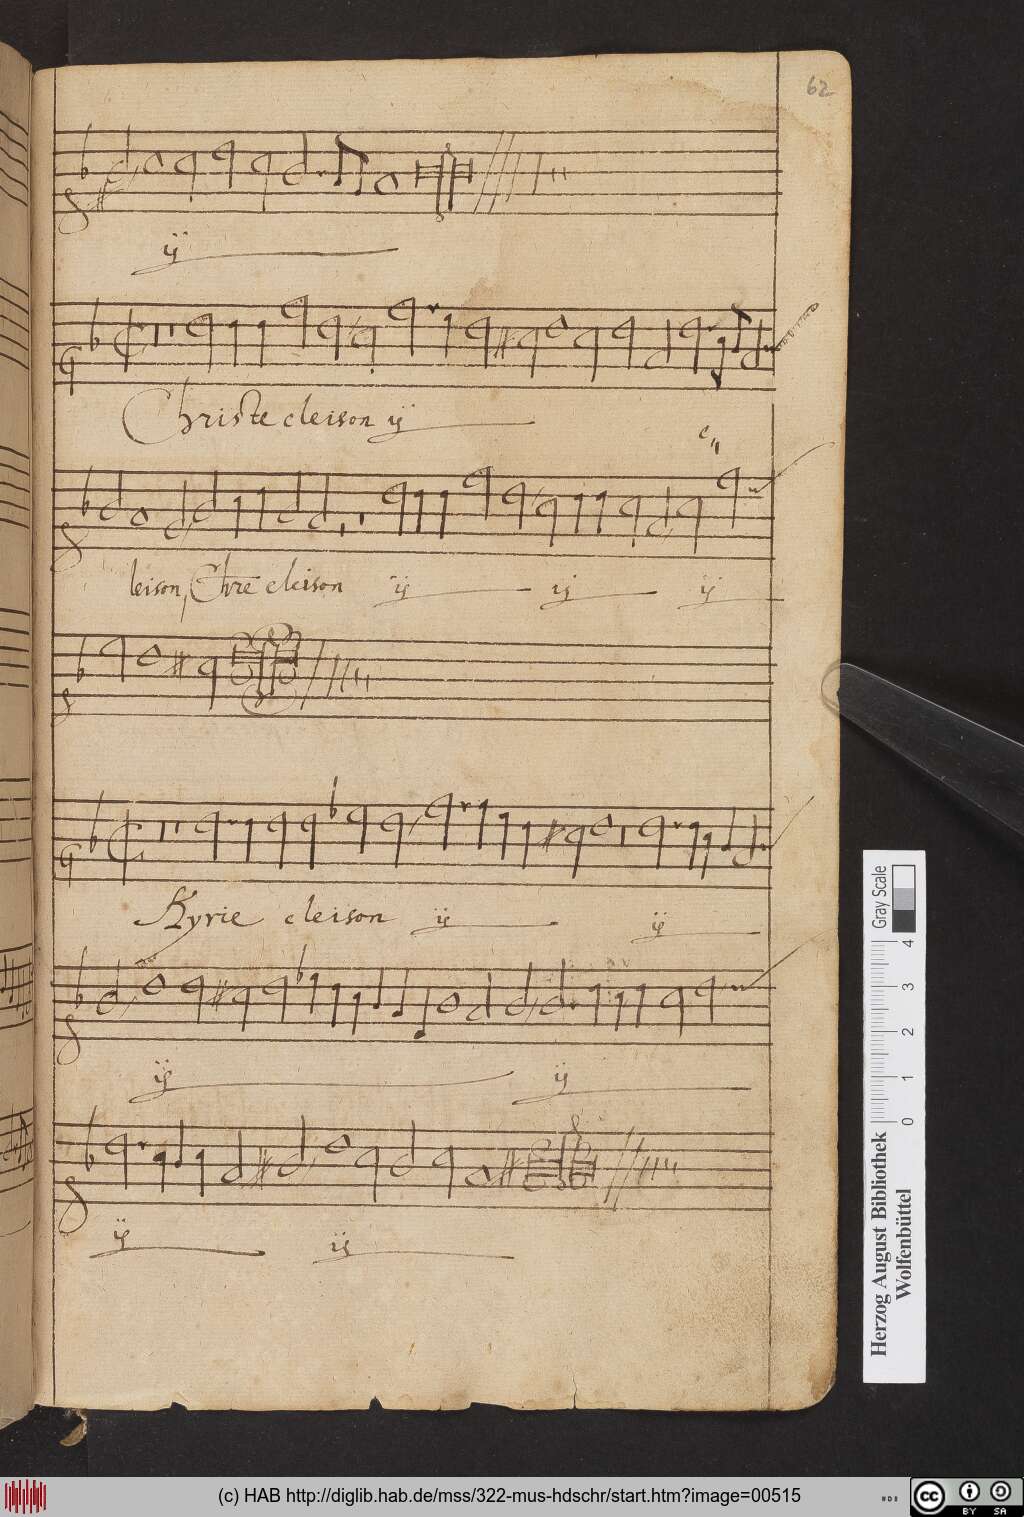 62
ij
Christe eleison ij
e
leison, Chre eleison ij ij ij
Kyrie eleison ij ij
ij ij
ij ij
Gray Scale
0 1 2 3 4
Herzog August Bibliothek
Wolfenbüttel
(c) HAB http://diglib.hab.de/mss/322-mus-hdschr/start.htm?image=00515
HAB
cc BY SA